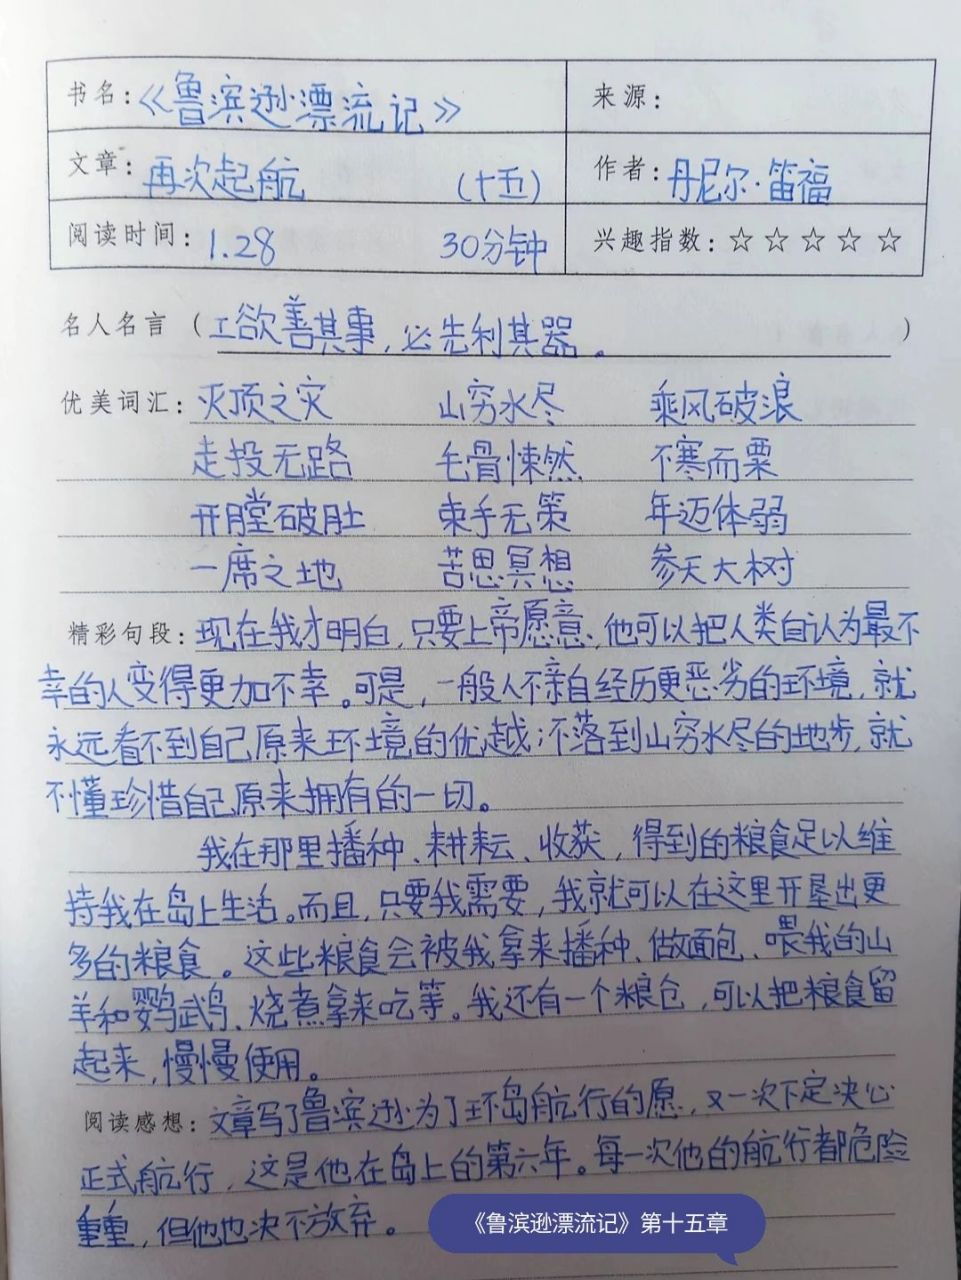 书名:《鲁滨逊漂流记》 来源:
文章:再次起航 (十五) 作者:丹尼尔·笛福
阅读时间:1.28 30分钟 兴趣指数:☆☆☆☆☆
名人名言(工欲善其事,必先利其器。)
优美词汇:灭顶之灾 山穷水尽 乘风破浪
走投无路 毛骨悚然 不寒而栗
开膛破肚 束手无策 年迈体弱
一席之地 苦思冥想 参天大树
精彩句段:现在我才明白,只要上帝愿意,他可以把人类自认为最不
幸的人变得更加不幸。可是,一般人不亲自经历更恶劣的环境,就
永远看不到自己原来环境的优越;不落到山穷水尽的地步,就
不懂珍惜自己原来拥有的一切。
我在那里播种、耕耘、收获,得到的粮食足以维
持我在岛上生活。而且,只要我需要,我就可以在这里开垦出更
多的粮食。这些粮食会被我拿来播种、做面包、喂我的山
羊和鹦鹉、烧煮拿来吃等。我还有一个粮仓,可以把粮食留
起来,慢慢使用。
阅读感想:文章写了鲁滨逊为了环岛航行的愿,又一次下定决心
正式航行,这是他在岛上的第六年。每一次他的航行都危险
重重,但他也决不放弃。
《鲁滨逊漂流记》第十五章